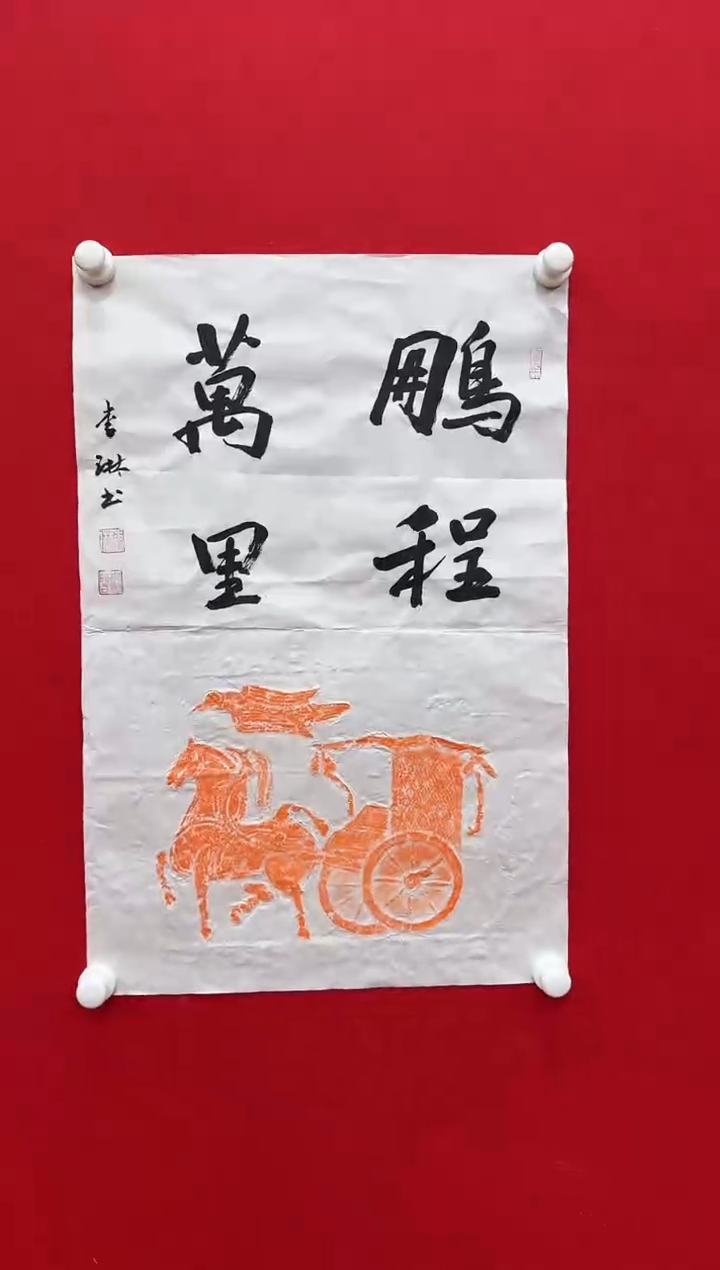 鵬程
萬里
李琳书